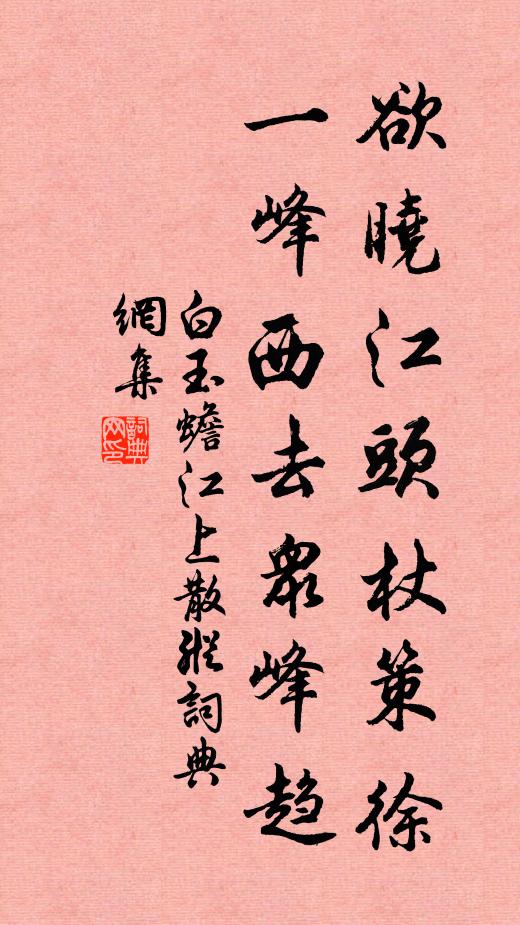 欲曉江頭杖策徐
一峰西去衆峰趋
白玉蟾江上散策詞典
網集
詞典
网印